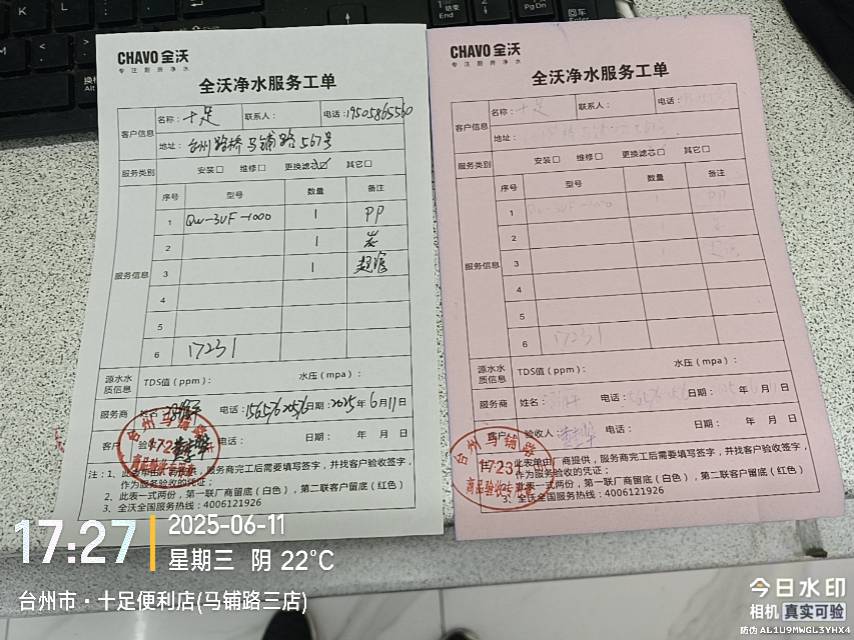 K
L
End
PgDn
Alt
CHAVO 全沃
专注厨房净水
全沃净水服务工单
客户信息
名称：十足
联系人：
电话：19505865560
地址：台州路桥马铺路567号
服务类别
安装□ 维修□ 更换滤芯☑ 其它□
服务信息
序号 型号 数量 备注
1 QW-3UF-1000 1 PP
2 1 炭
3 1 超滤
4
5
6 17231
源水水质信息
TDS值（ppm）： 水压（mpa）：
服务商
姓名： 电话： 日期：2025年6月11日
客户
电话： 日期： 年 月 日
台州马铺路
17231
商品验收专用章
注：1、此表单由厂商提供，服务商完工后需要填写签字，并找客户验收签字，
作为服务验收的凭证；
2、此表一式两份，第一联厂商留底（白色），第二联客户留底（红色）
3、全沃全国服务热线：4006121926
CHAVO 全沃
专注厨房净水
全沃净水服务工单
客户信息
名称：十足
联系人：
电话：
地址：
服务类别
安装□ 维修□ 更换滤芯□ 其它□
服务信息
序号 型号 数量 备注
1 QW-3UF-1000 1 PP
2
3
4
5
6 17231
源水水质信息
TDS值（ppm）： 水压（mpa）：
服务商
姓名： 电话： 日期： 年 月 日
客户
验收人： 电话： 日期： 年 月 日
台州马铺路
17231
商品验收专用章
注：1、此表单由厂商提供，服务商完工后需要填写签字，并找客户验收签字，
作为服务验收的凭证；
2、此表一式两份，第一联厂商留底（白色），第二联客户留底（红色）
3、全沃全国服务热线：4006121926
17:27
2025-06-11
星期三 阴 22°C
台州市·十足便利店(马铺路三店)
今日水印
相机 真实可验
防伪 AL1U9MWGL3YHX4